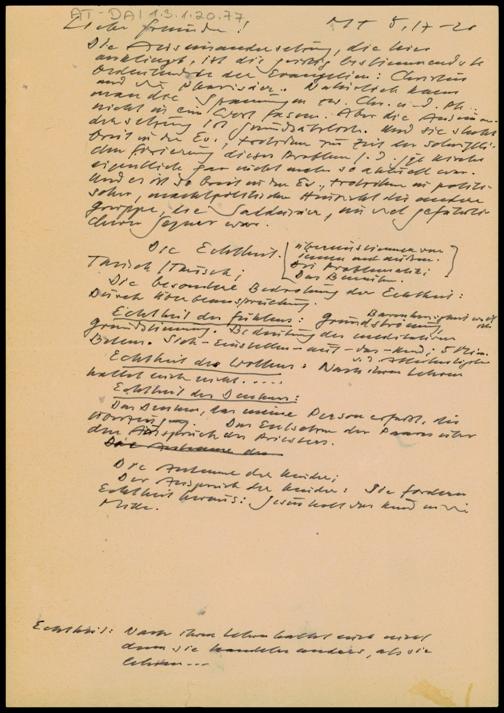 AT-DAI 1.3.1.20.77
Liebe Freunde! Mt 5, 17-20
Die Auseinandersetzung, die hier
anklingt, ist die geistig bestimmendste
der Evangelien: Christus
und die Pharisäer. Natürlich kann
man die Spannung zw. Chr. u. d. Ph.
nicht in ein Wort fassen. Aber die Auseinan-
dersetzung ist grundsätzlich. Und sie steht
breit in den Ev., trotzdem zur Zeit der schriftli-
chen Fixierung dieses Problem f. d. junge Kirche
eigentlich gar nicht mehr so aktuell war.
Und es ist so breit in den Ev., trotzdem in politi-
scher, machtpolitischer Hinsicht die andere
Gruppe, die Sadduzäer, ein viel gefährli-
cherer Gegner war.
Die Echtheit.
innen und außen.
Die Problematik;
Das Bemühen.
Tausch/Täusch;
Die besondere Bedrohung der Echtheit:
Durch Überbeanspruchung.
Echtheit des Fühlens: Grundströmung,
Grundstimmung. Bedeutung des meditativen
Betens. Sich-Einstellen-auf-das-Kind;
Echtheit des Wollens: Nach ihren Lehren
haltet euch nicht....
Echtheit des Denkens:
Das Denken, das meine Person erfaßt, die
Das Entsetzen der Paare über
den Anspruch des Priesters.
Die Antenne der
Die Antenne der Kinder;
Der Anspruch der Kinder: Sie fordern
Echtheit heraus: Jesus holt das Kind in die
Mitte.
Echtheit: Nach ihren Lehren haltet euch nicht
denn sie handeln anders, als sie
lehren...